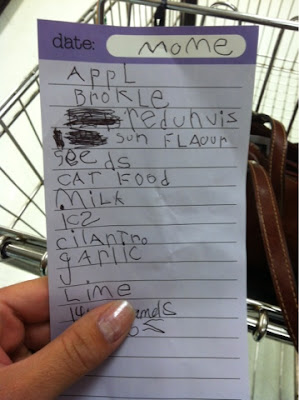 date: mome
APPL
Brokle
redunvis
sun FLAOUr
seeds
CAT FOOd
MiLK
cilantro
garlic
Lime